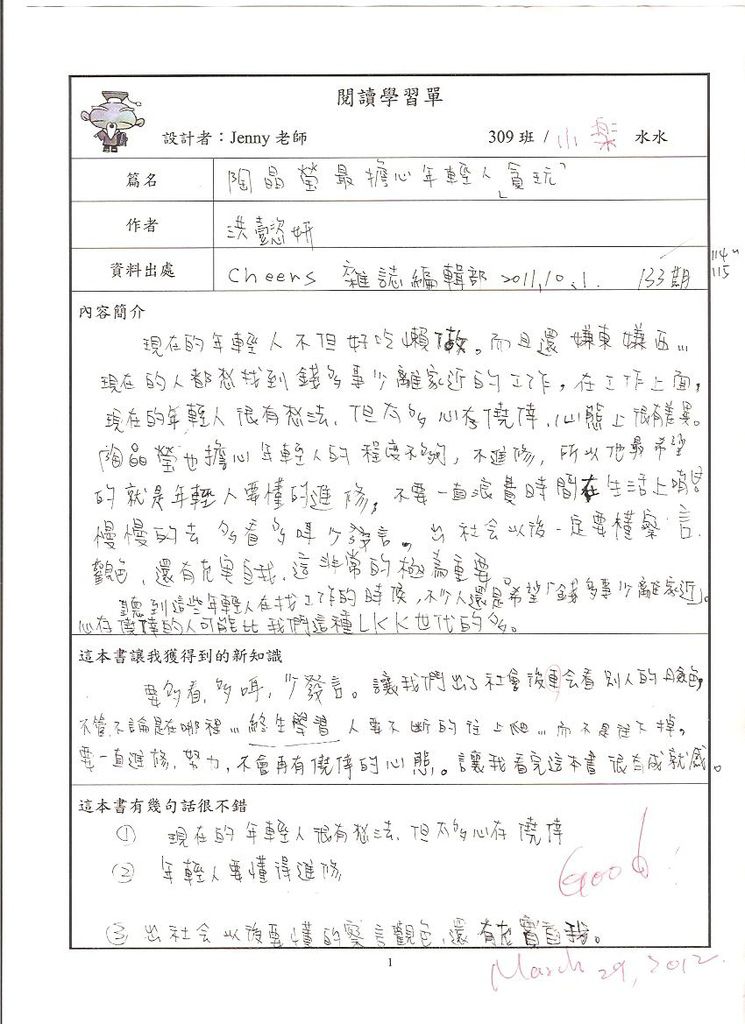 閱讀學習單
設計者：Jenny 老師
309 班 / 小樂 水水
篇名 陶晶瑩最擔心年輕人「貪玩」
作者 洪懿妍
資料出處 Cheers 雜誌編輯部 2011.10.1. 133期
114~
115
內容簡介
現在的年輕人不但好吃懶做。而且還嫌東嫌西...
現在的人都想找到錢多事少離家近的工作，在工作上面，
現在的年輕人很有想法、但太多心存僥倖、心態上很有差異。
陶晶瑩也擔心年輕人的程度不夠，不進修，所以他最希望
的就是年輕人要懂的進修，不要一直浪費時間在生活上
慢慢的去多看多嗎少發言。出社会以後一定要懂察言
觀色、還有充實自我、這非常的極為重要
聽到這些年輕人在找工作的時候，不少人還是希望「錢多事少離家近」。
心存僥倖的人可能比我們這種LKK世代的多。
這本書讓我獲得到的新知識
要多看，多嗎，少發言。讓我們出了社會後更会看別人的臉色，
不管不論是在哪裡...終生學習 人要不斷的往上爬...而不是往下掉，
要一直進修，努力，不會再有僥倖的心態。讓我看完這本書很有成就感。
這本書有幾句話很不錯
① 現在的年輕人很有想法、但太多心存僥倖
② 年輕人要懂得進修
Good!
③ 出社会以後要懂的察言觀色、還有充實自我。
1
March 29, 2012.